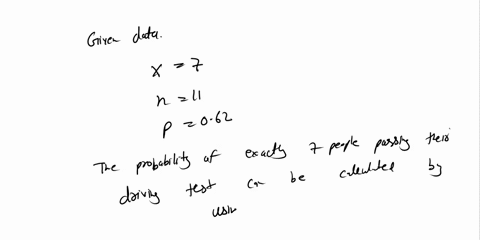 Given data.
X = 7
n = 11
P = 0.62
The probability of exactly 7 people passing their
driving test can be calculated by
usin